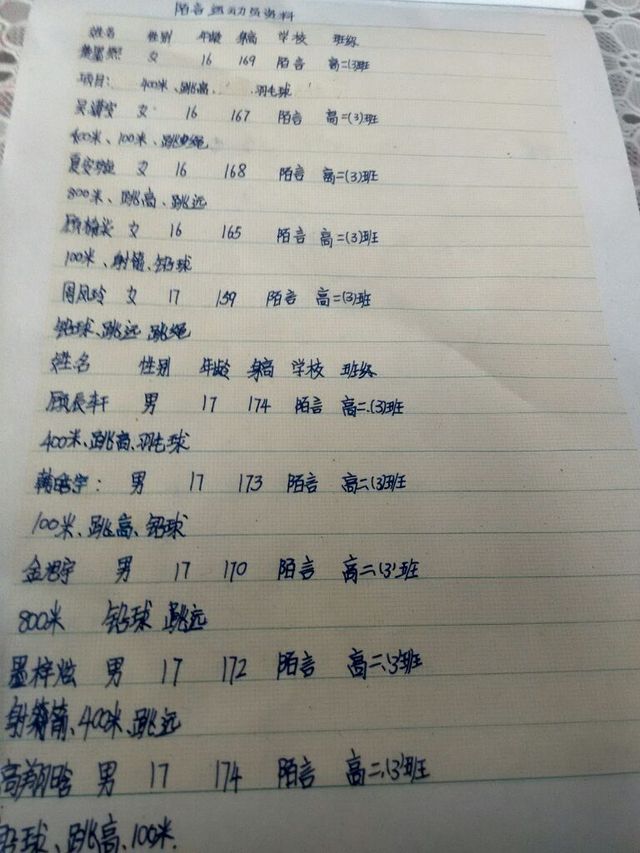 陌言运动员资料
姓名 性别 年龄 身高 学校 班级
墨熙 女 16 169 陌言 高二(3)班
项目: 400米、跳高、羽毛球
吴清安 女 16 167 陌言 高二(3)班
400米、100米、跳绳
夏安 女 16 168 陌言 高二(3)班
800米、跳高、跳远
顾 女 16 165 陌言 高二(3)班
100米、射箭、铅球
周凤玲 女 17 159 陌言 高二(3)班
铅球、跳远 跳绳
姓名 性别 年龄 身高 学校 班级
顾辰轩 男 17 174 陌言 高二.(3)班
400米、跳高、羽毛球
韩皓宇: 男 17 173 陌言 高二(3)班
100米、跳高、铅球
金旭宇 男 17 170 陌言 高二(3)班
800米 铅球 跳远
墨梓炫 男 17 172 陌言 高二(3)班
射箭、400米、跳远
高翔晗 男 17 174 陌言 高二.(3)班
铅球、跳高、100米.